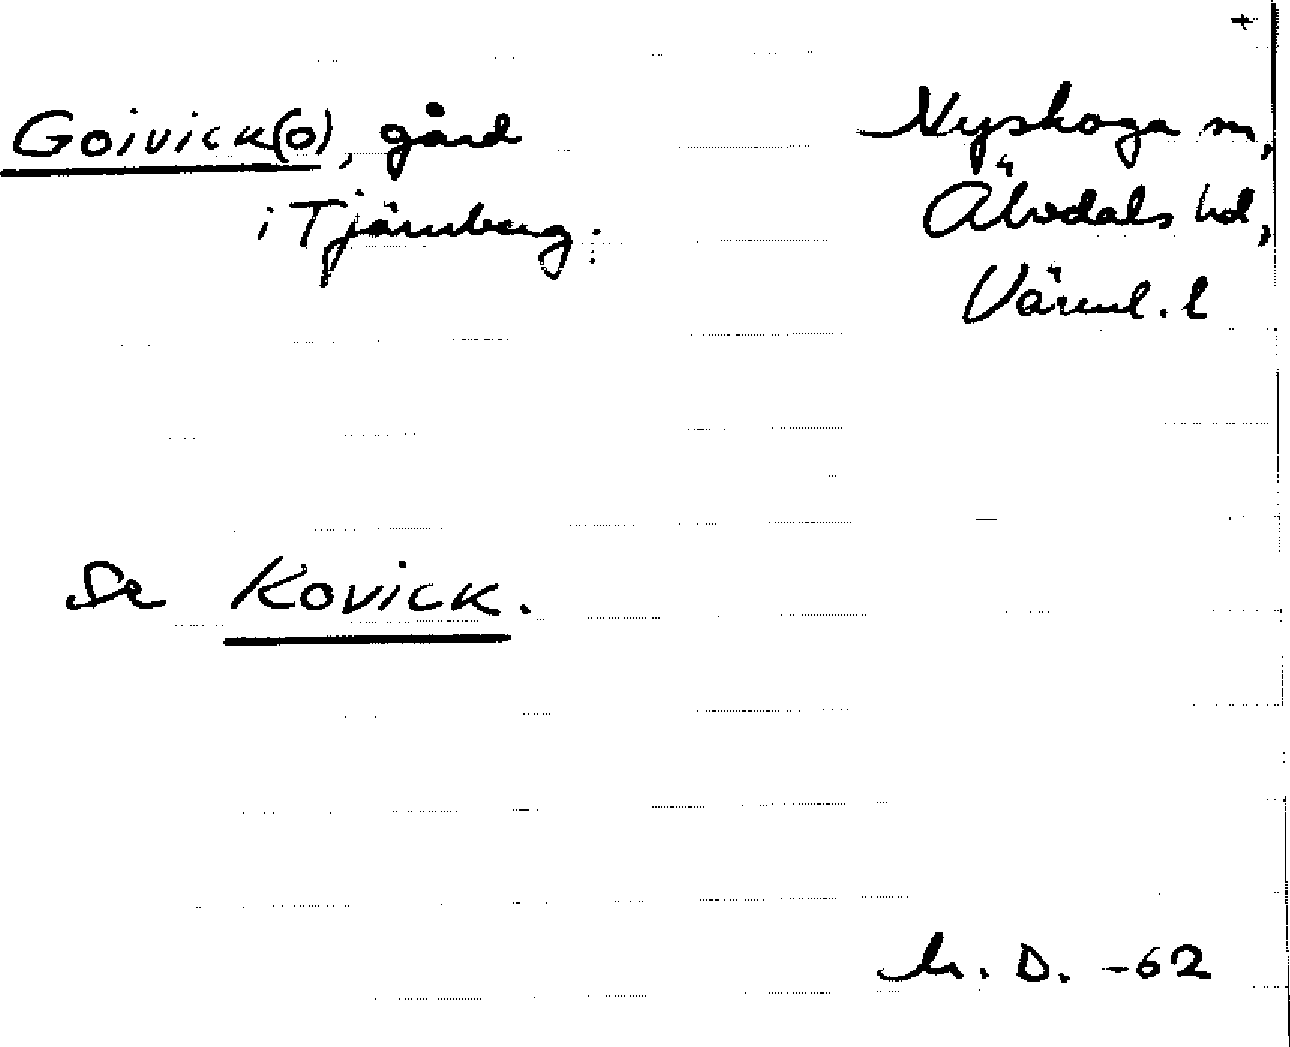 +
Goivick(o), gård
i Tjärnberg.
Nyskoga sn,
Älvdals hd,
Värml. l
Se Kovick.
h. D. -62